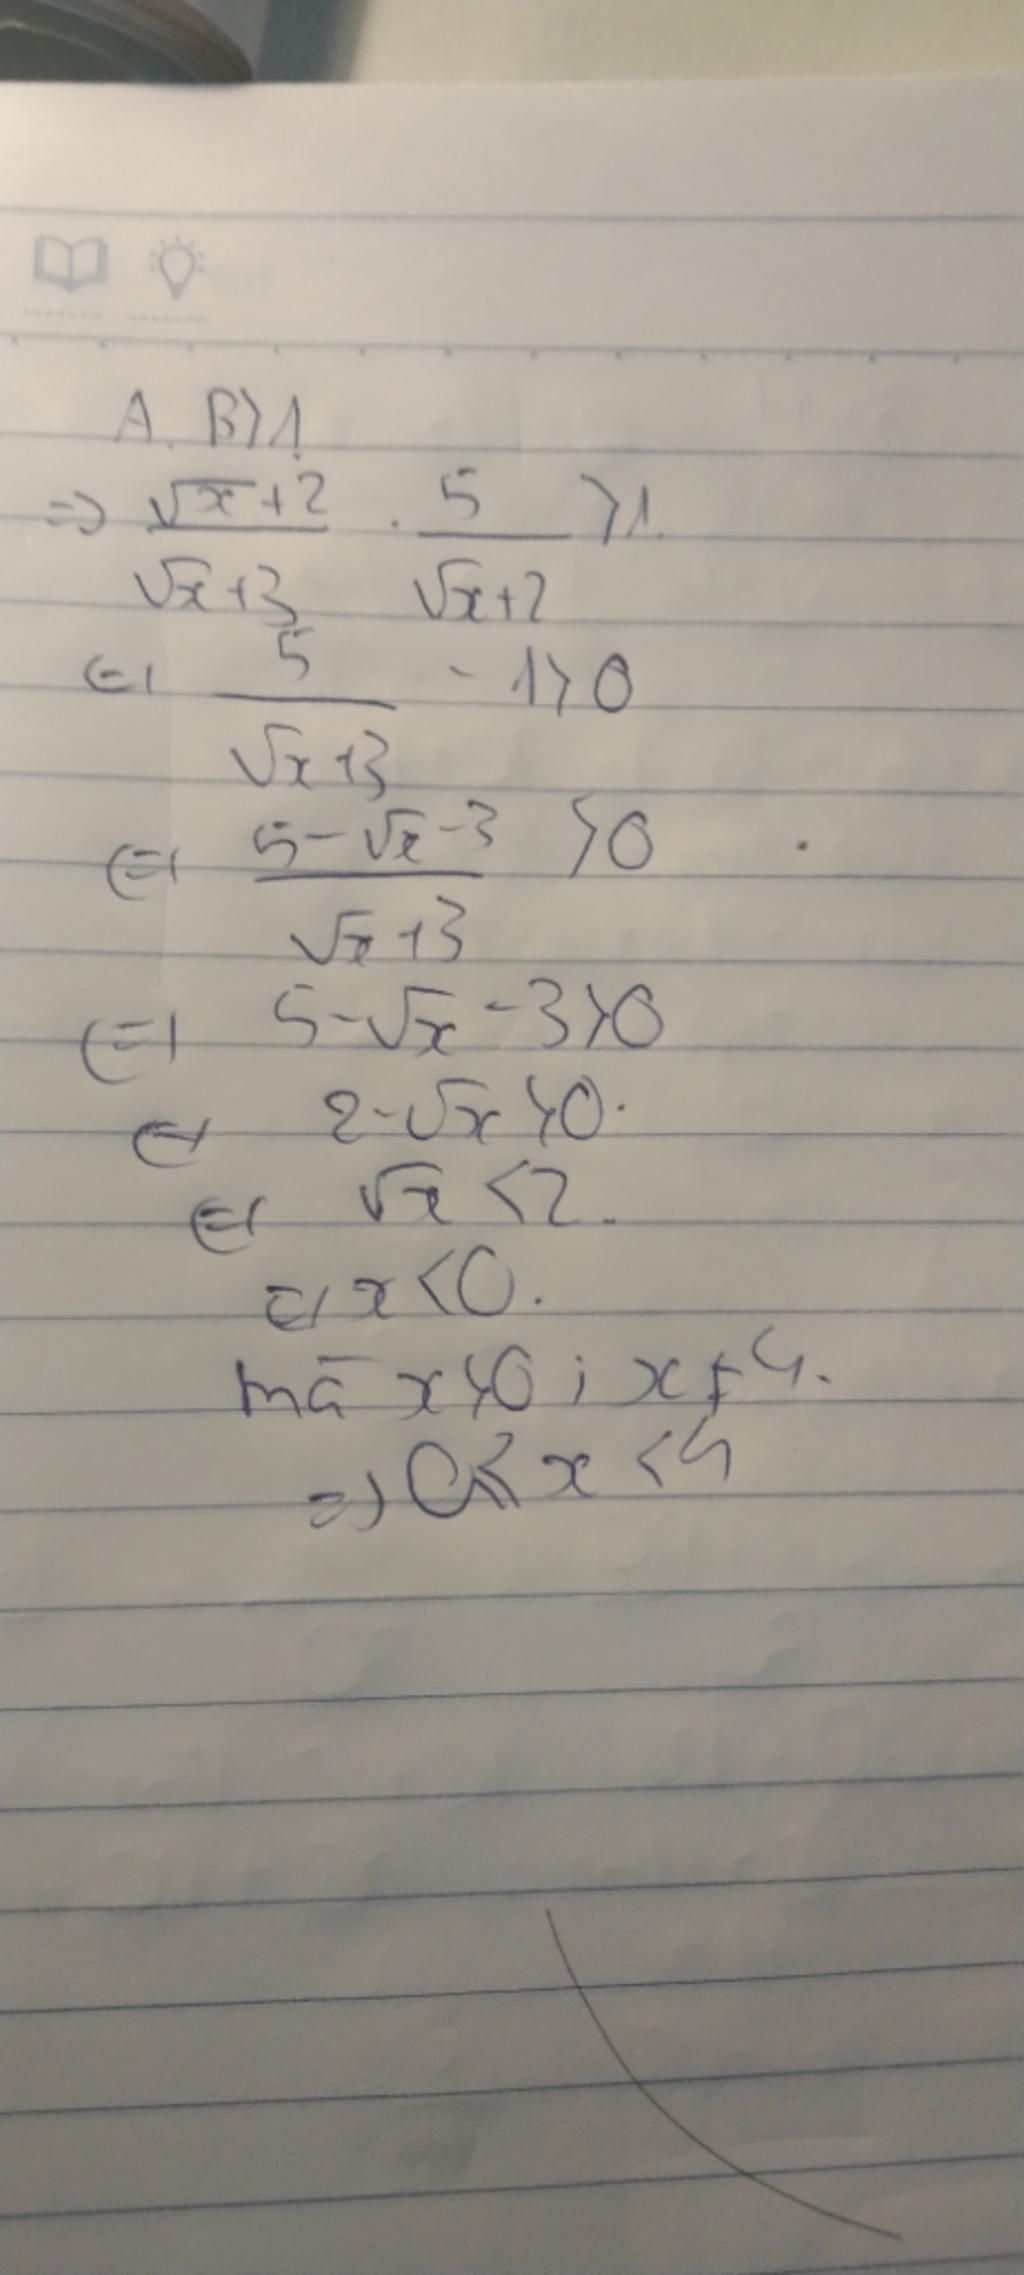 A. B>1
=> √x+2 / √x+3 . 5 / √x+2 >1.
<=> 5 / √x+3 - 1>0
<=> 5-√x-3 / √x+3 >0
<=> 5-√x-3>0
<=> 2-√x>0.
<=> √x<2.
=> x<0.
mà x>0; x≠4.
=> 0≤x<4